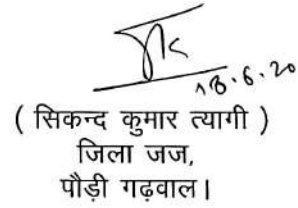 18.6.20
( सिकन्द कुमार त्यागी )
जिला जज,
पौड़ी गढ़वाल।